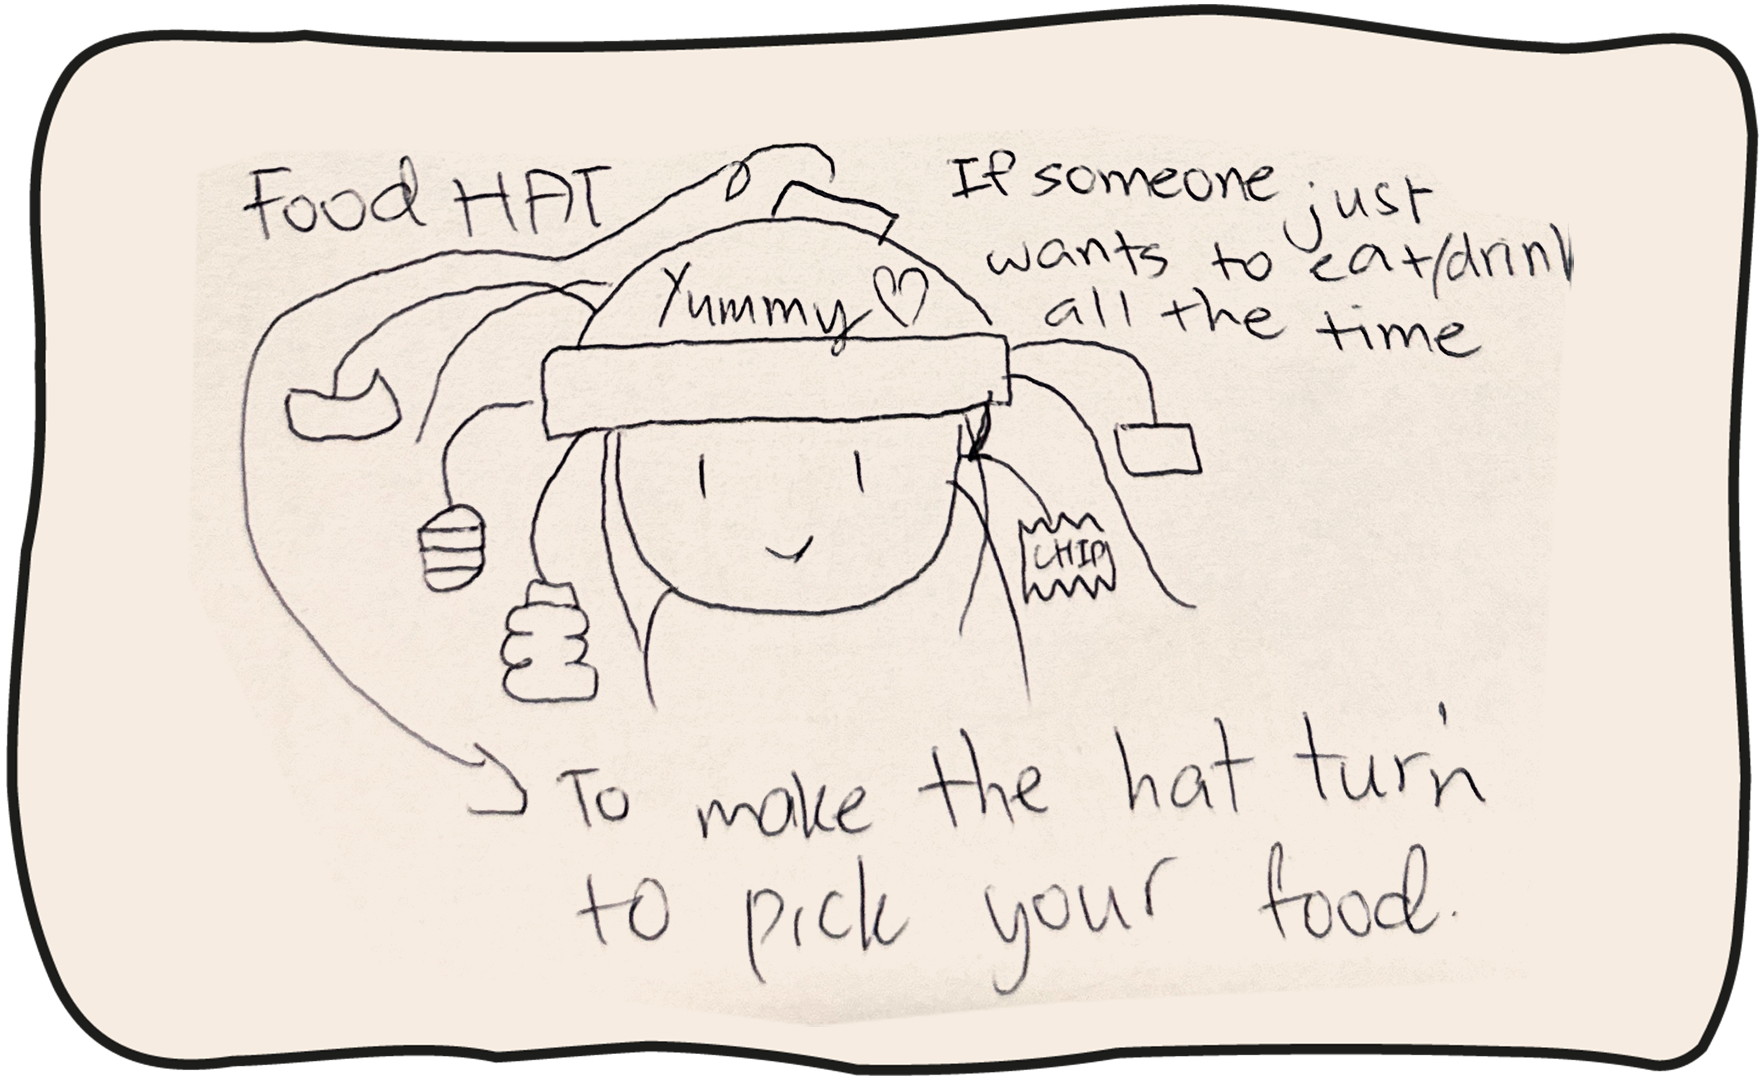 Food HAT
If someone just
wants to eat/drink
all the time
Yummy♡
CHIP
To make the hat turn
to pick your food.